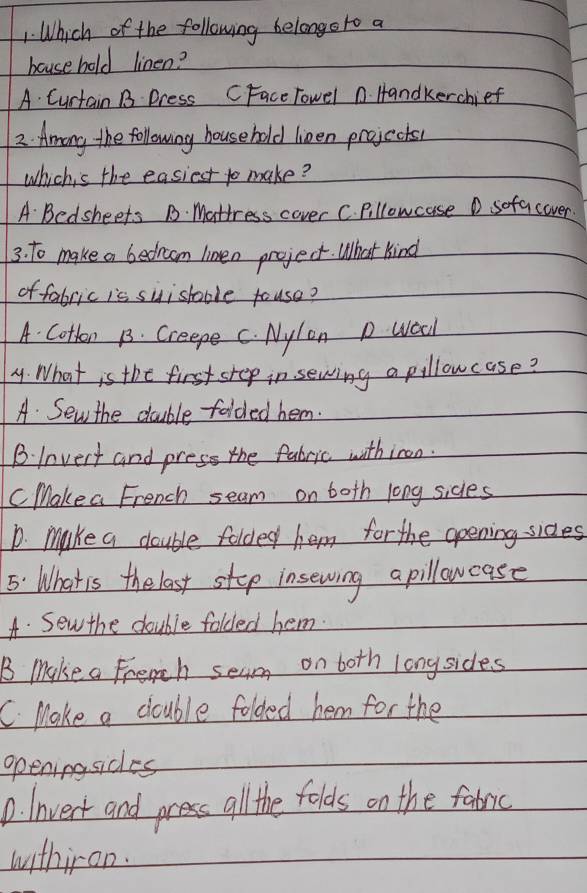 1. Which of the following belongs to a
household linen?
A. Curtain B. Dress C Face Towel D. Handkerchief
2. Among the following household linen projects,
which is the easiest to make?
A. Bedsheets B. Mattress cover C. Pillowcase D sofa cover.
3. To make a bedroom linen project. What kind
of fabric is suistable to use?
A. Cotton B. Creepe C. Nylon D Wool
4. What is the first step in sewing a pillowcase?
A. Sew the double folded hem.
B. Invert and press the fabric with iron.
C Make a French seam on both long sides
D. Make a double folded hem for the opening sides
5. What is the last step in sewing a pillowcase
A. Sew the double folded hem.
B Make a French seam on both long sides
C. Make a double folded hem for the
opening sides
D. Invert and press all the folds on the fabric
with iron.